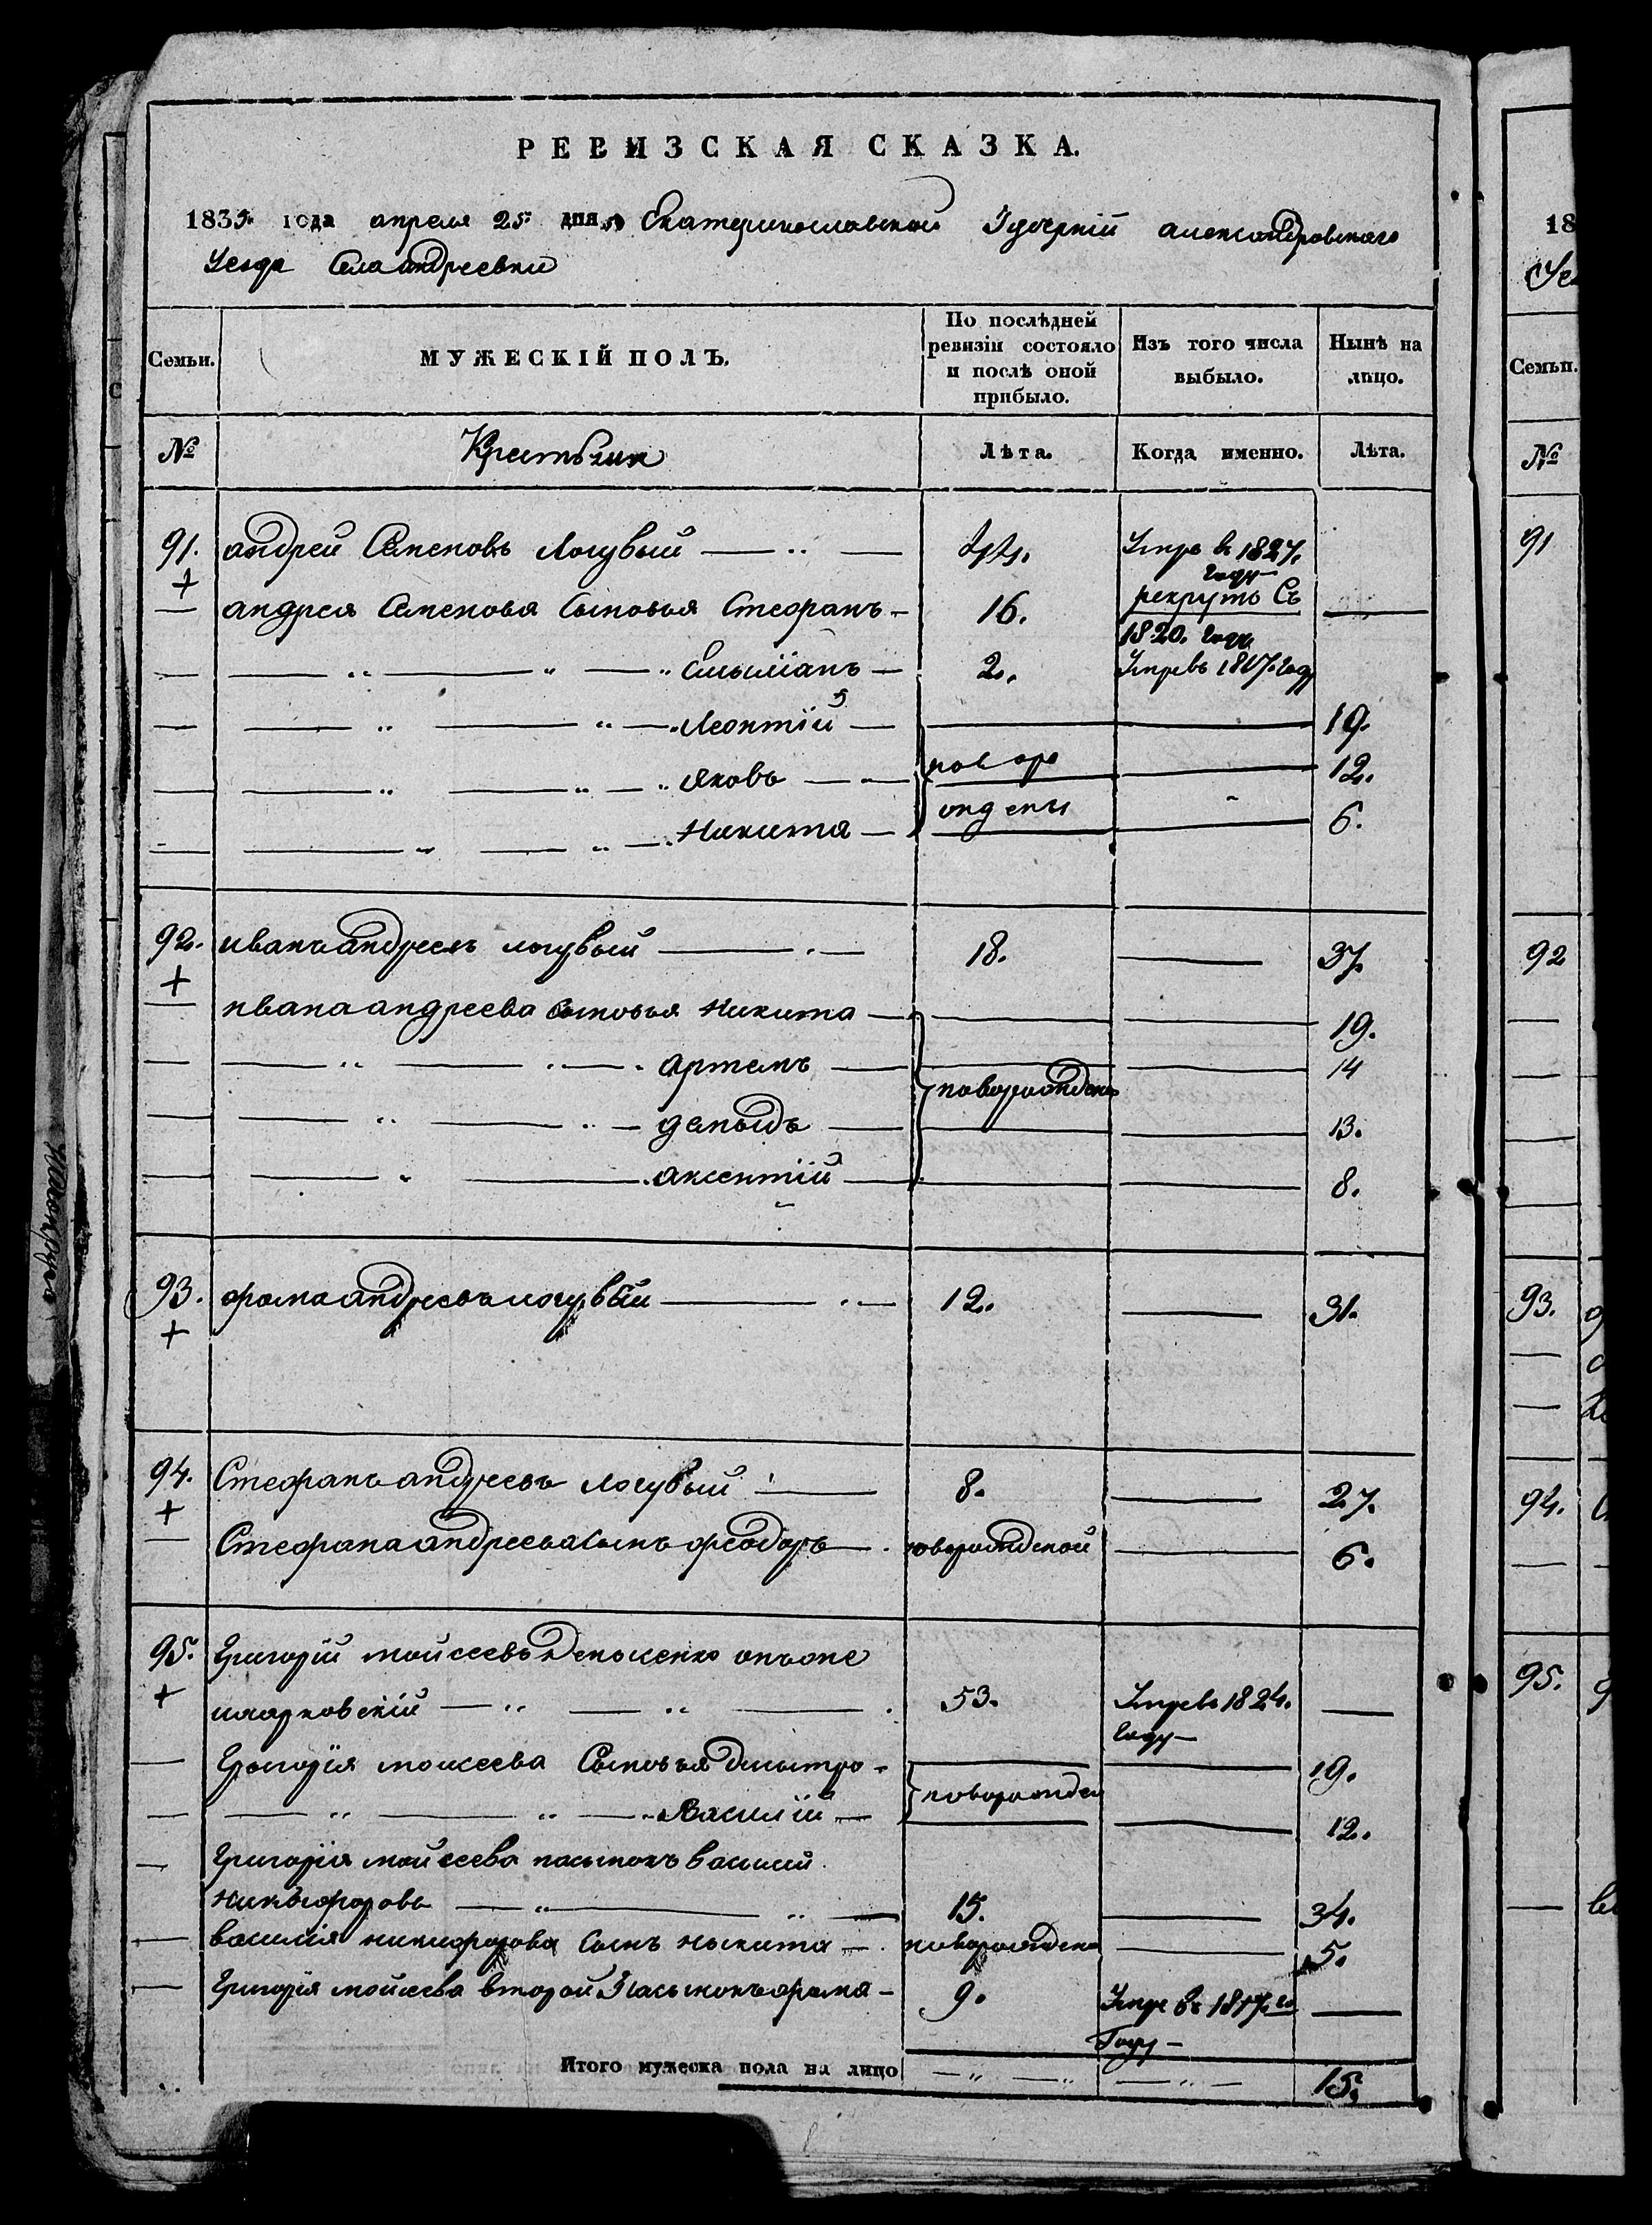 РЕВИЗСКАЯ СКАЗКА.
1835 года апреля 25 дня Екатеринославской Губерній александровскаго
Уезда Села андреевки
Семьи.
МУЖЕСКІЙ ПОЛЪ.
По послѣдней ревизіи состояло и послѣ оной прибыло.
Изъ того числа выбыло.
Нынѣ на лицо.
№
Лѣта.
Когда именно.
Лѣта.
91. андрей Семеновъ Логувый 44. Умре въ 1827. году
андрея Семеновя Сыновья Стефанъ 16. рекрутъ Съ 1820. года
2. Умре въ 1817. году
Леонтій 19.
Яковъ новоро 12.
Никита ждены 6.
92. иванъ андреевъ логувый 18. 37.
ивана андреева Сыновья Никита 19.
артемъ новорожден 14
демыдъ 13.
аксентій 8.
93. фома андреевъ логувый 12. 31.
94. Стефанъ андреевъ логувый 8. 27.
Стефана андреева Сынъ феодоръ новорожденой 6.
95. Григорій мойсеевъ онъ же
53. Умре въ 1824. году
Григорія моисеева Сыновья Дмытро 19.
Василій новорожден 12.
Григорія мойсеева пасынокъ василий
Никыфоровъ 15. 34.
василія никифорова Сынъ Ныкита новорожден 5.
Григорія мойсеева второй Пасынокъ фома 9. Умре въ 1817. го
Году
Итого мужеска пола на лицо 15.
18
Уе
Семьи.
№
91
92
93.
94.
95.